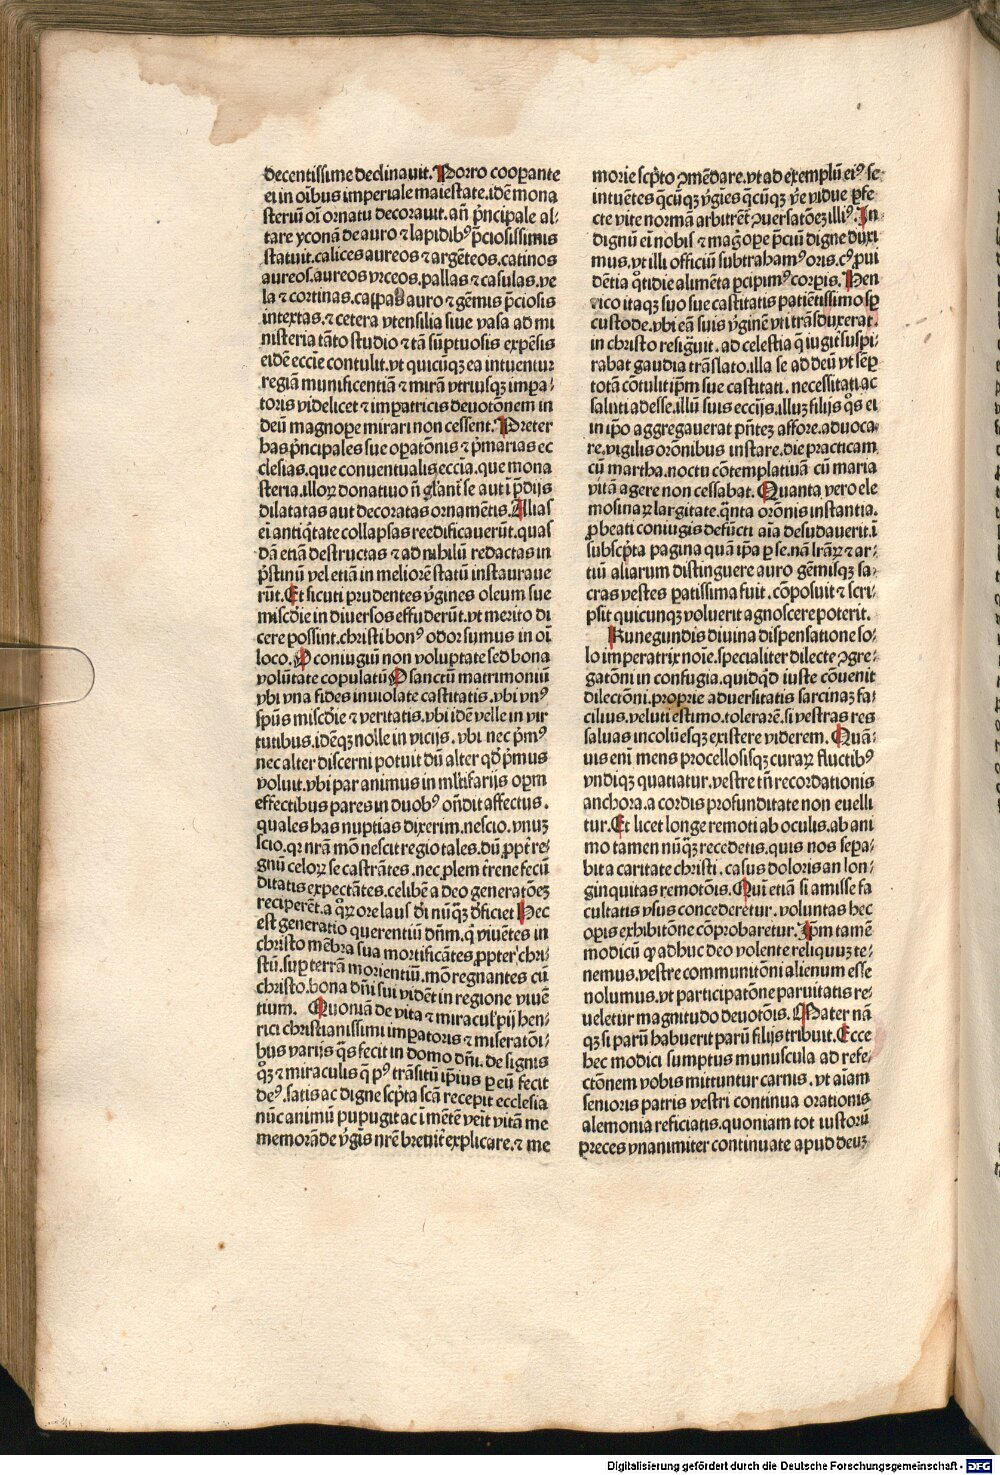 decentissime declinauit. Porro cooꝑante
ei in oībus imperiale maiestate. idē mona
steriū oī ornatu decorauit. añ p̄ncipale al⸗
tare yconā de auro ⁊ lapidibꝰ p̄ciosissimis
statuit. calices aureos ⁊ argēteos. catinos
aureos. aureos vrceos. pallas ⁊ casulas. ve
la ⁊ cortinas. cappas auro ⁊ gēmis p̄ciosis
intextas. ⁊ cetera vtensilia siue vasa ad mi
nisteria tāto studio ⁊ tā sūptuosis expēsis
eidē eccīe contulit. vt quicūqꝫ ea intuentur
regiā munificentiā ⁊ mirā vtriusqꝫ impa⸗
toris videlicet ⁊ imꝑatricis deuotōnem in
deū magnopere mirari non cessent. Preter
has p̄ncipales sue oꝑatōnis ⁊ p̄marias ec
clesias. que conuentualis eccīa. que mona
steria. illoꝝ donatiuo ñ glāant̄ se aut ī p̄dijs
dilatatas aut decoratas ornamētis. Alias
ei antiq̄tate collapsas reedificauerūt. quas
dā etiā destructas ⁊ ad nihilū redactas in
p̄stinū vel etiā in meliorē statū instauraue
rūt. Et sicuti prudentes v̄gines oleum sue
miscdie in diuersos effuderūt. vt merito di
cere possint. christi bonꝰ odor sumus in oī
loco. O coniugiū non voluptate sed bona
volūtate copulatū O sanctū matrimoniū
vbi vna fides inuiolate castitatis. vbi vnꝰ
spūs miscdie ⁊ veritatis. vbi idē velle in vir
tutibus. idēqꝫ nolle in vicijs. vbi nec p̄mꝰ
nec alter discerni potuit dū alter qd̄ p̄mus
voluit. vbi par animus in ml̄tifarijs oꝑm
effectibus pares in duobꝰ oñdit affectus.
quales has nuptias dixerim. nescio. vnuꝫ
scio. qꝛ nrā mō nescit regio tales. dū ꝓpt̄ re⸗
gnū celoꝝ se castrātes. nec ꝓlem t̄rene fecū
ditatis expectātes. celibē a deo generatōeꝫ
reciperēt. a q̄ꝝ ore laus dī nūq̄ꝫ d̄ficiet Hec
est generatio querentiū dñm. q̄ viuētes in
christo mēbra sua mortificātes ꝓpter chri⸗
stū. suꝑ terrā morientiū. mō regnantes cū
christo. bona dñi sui vidēt in regione viuē
tium. Quoniā de vita ⁊ miracul' pij hen⸗
rici christianissimi imꝑatoris ⁊ miseratōi⸗
bus varijs q̄s fecit in domo dñi. de signis
q̄ꝫ ⁊ miraculis q̄ pꝰ trāsitū ipīus ꝑ eū fecit
deꝰ. satis ac digne scp̄ta scā recepit ecclesia
nūc animū pupugit ac ī mētē venit vitā me
memorāde v̄gīs nrē breuit̄ explicare. ⁊ me
morie scp̄to ↄmēdare. vt ad exemplū eiꝰ se
intuētes q̄cūqꝫ v̄gīes q̄cūqꝫ v̄e vidue ꝑfe
cte vite normā arbitrēt̄ ↄuersatōeꝫ illiꝰ. In
dignū ei nobis ⁊ mag̃ope p̄ciū digne duxi
mus. vt illi officiū subtrahamꝰ oris. cꝰ ꝓui
dētia q̊tidie alimēta ꝑcipimꝰ corꝑis. Hen
rico itaqꝫ suo sue castitatis patiētissimo sp̄
custode. vbi eā suis v̄ginē vti trāsduxerat.
in christo resig̃uit. ad celestia q̄ iugit̄ suspi⸗
rabat gaudia trāslato. illa se ad deū vt sēꝑ
totā cōtulit ip̄m sue castitati. necessitati ac
saluti adesse. illū suis eccijs. illuꝫ filijs q̊s ei
in ip̄o aggregauerat pñteꝫ affore. aduoca⸗
re. vigilis orōnibus instare. die practicam
cū martha. noctu cōtemplatiuā cū maria
vitā agere non cessabat. Quanta vero ele
mosinaꝝ largitate. q̄nta orōnis instantia.
ꝓ beati coniugis defūcti aīa desudauerit. ī
subscp̄ta pagina quā ip̄a ꝑ se. nā lrāꝝ ⁊ ar⸗
tiū aliarum distinguere auro gēmisqꝫ sa⸗
cras vestes ꝑatissima fuit. cōposuit ⁊ scri⸗
psit quicunqꝫ voluerit agnoscere poterit.
Kunegundis diuina dispensatione so⸗
lo imperatrix noīe. specialiter dilecte ↄgre⸗
gatōni in confugia. quidq̊d iuste cōuenit
dilectōni. proprie aduersitatis sarcinaꝫ fa⸗
cilius. veluti estimo. tolerarē. si vestras res
saluas incolūesqꝫ existere viderem. Quā⸗
uis eni mens procellosisqꝫ curaꝝ fluctibꝰ
vndiqꝫ quatiatur. vestre tn̄ recordationis
anchora. a cordis profunditate non euelli
tur. Et licet longe remoti ab oculis. ab ani
mo tamen nūq̄ꝫ recedetis. quis nos seꝑa⸗
bit a caritate christi. casus doloris an lon⸗
ginquitas remotōis. Qui etiā si amisse fa
cultatis vsus concederetur. voluntas hec
oꝑis exhibitōne cōprobaretur. Ipm tamē
modicū qꝫ adhuc deo volente reliquuꝫ te⸗
nemus. vestre communitōni alienum esse
nolumus. vt participatōne paruitatis re⸗
ueletur magnitudo deuotōis. Mater nā
qꝫ si parū habuerit parū filijs tribuit. Ecce
hec modici sumptus munuscula ad refe⸗
ctōnem vobis mittuntur carnis. vt aīam
senioris patris vestri continua orationis
alemonia reficiatis. quoniam tot iustorū
preces vnanimiter continuate apud deuꝫ
Digitalisierung gefördert durch die Deutsche Forschungsgemeinschaft - DFG